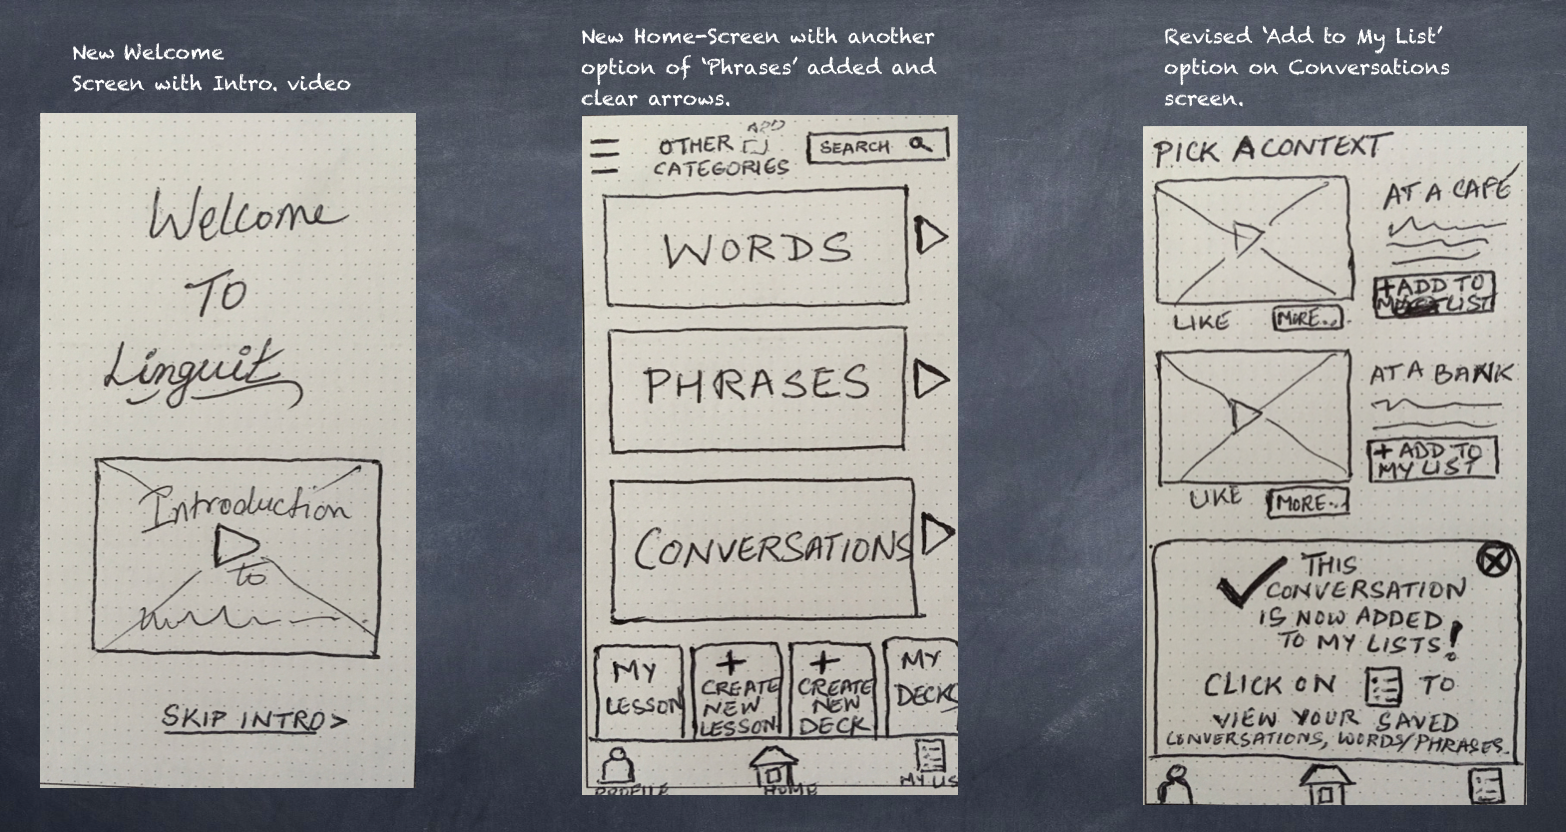 New Welcome
Screen with Intro. video
Welcome
To
Linguit
Introduction
to
SKIP INTRO >
New Home-Screen with another
option of 'Phrases' added and
clear arrows.
ADD
OTHER
CATEGORIES
SEARCH
WORDS
PHRASES
CONVERSATIONS
MY
LESSON
+
CREATE
NEW
LESSON
+
CREATE
NEW
DECK
MY
DECKS
PROFILE
HOME
MY LIS
Revised 'Add to My List'
option on Conversations
screen.
PICK A CONTEXT
AT A CAFE
+ ADD TO
MY LIST
LIKE
MORE...
AT A BANK
+ ADD TO
MY LIST
LIKE
MORE...
THIS
CONVERSATION
IS NOW ADDED
TO MY LISTS!
CLICK ON TO
VIEW YOUR SAVED
CONVERSATIONS, WORDS/PHRASES.